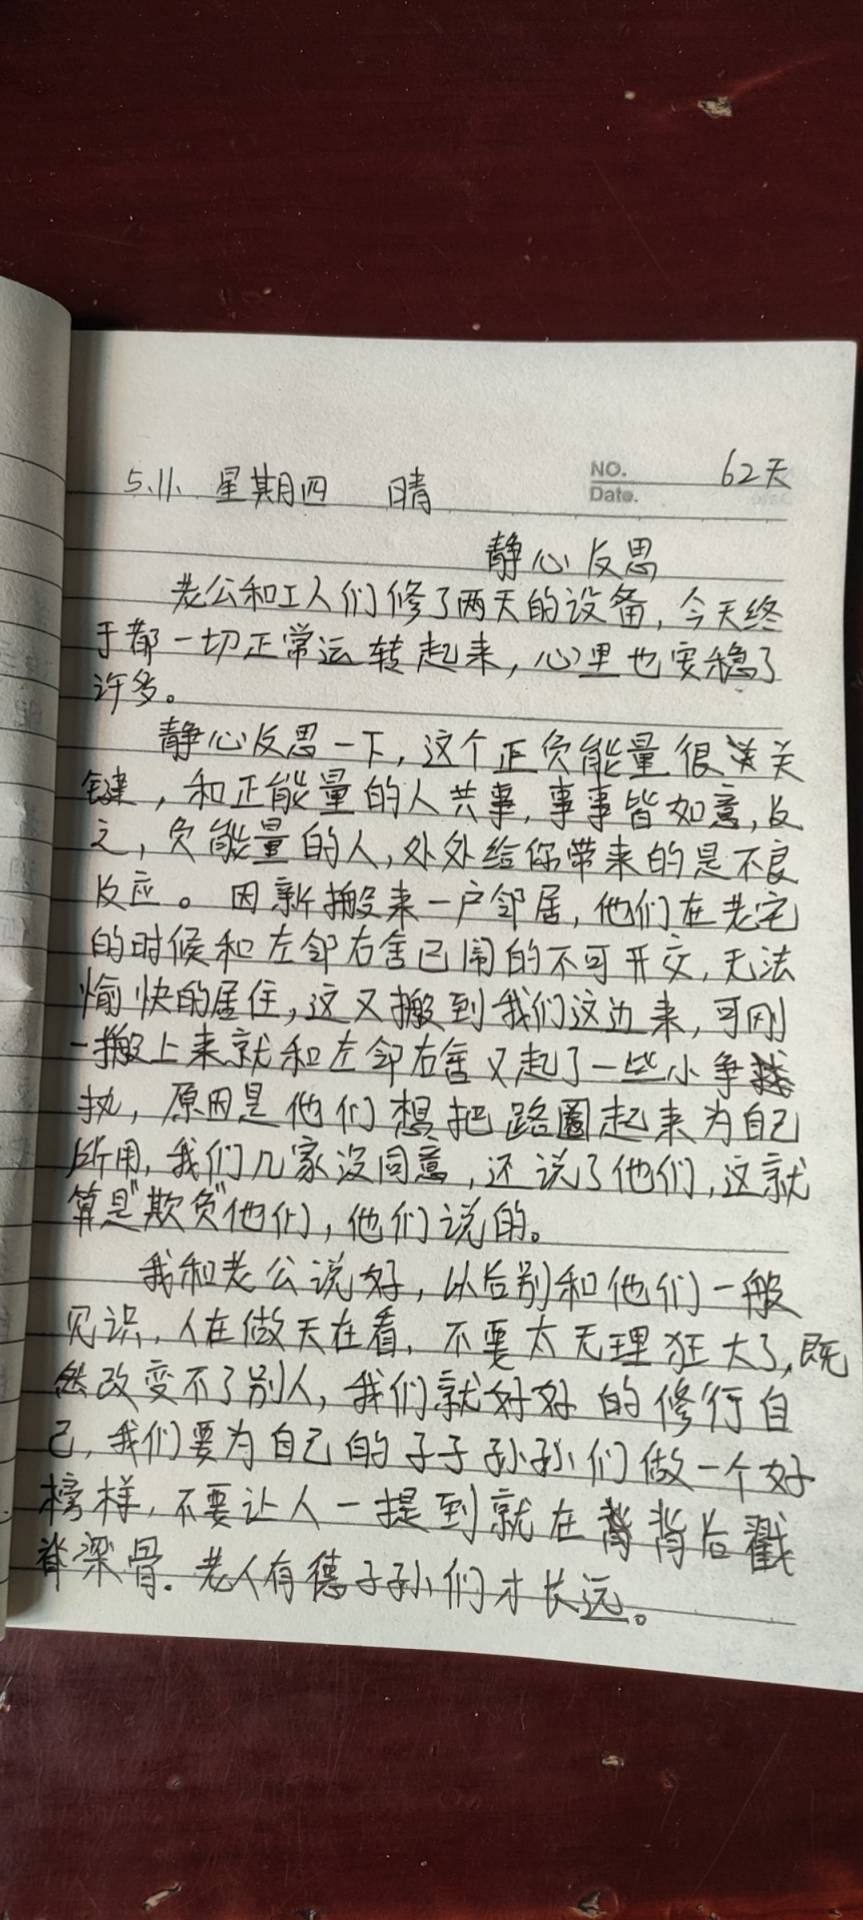 5.11. 星期四 晴 NO. 62天
Date.
静心反思
老公和工人们修了两天的设备,今天终
于都一切正常运转起来,心里也安稳了
许多。
静心反思一下,这个正负能量很关
键,和正能量的人共事,事事皆如意,反
之,负能量的人,处处给你带来的是不良
反应。因新搬来一户邻居,他们在老宅
的时候和左邻右舍已闹的不可开交,无法
愉快的居住,这又搬到我们这边来,可刚
一搬上来就和左邻右舍又起了一些小争
执,原因是他们想把路圈起来为自己
所用,我们几家没同意,还说了他们,这就
算是"欺负"他们,他们说的。
我和老公说好,以后别和他们一般
见识,人在做天在看,不要太无理狂大了,既
然改变不了别人,我们就好好的修行自
己,我们要为自己的子子孙孙们做一个好
榜样,不要让人一提到就在背后戳
脊梁骨.老人有德子孙们才长远。